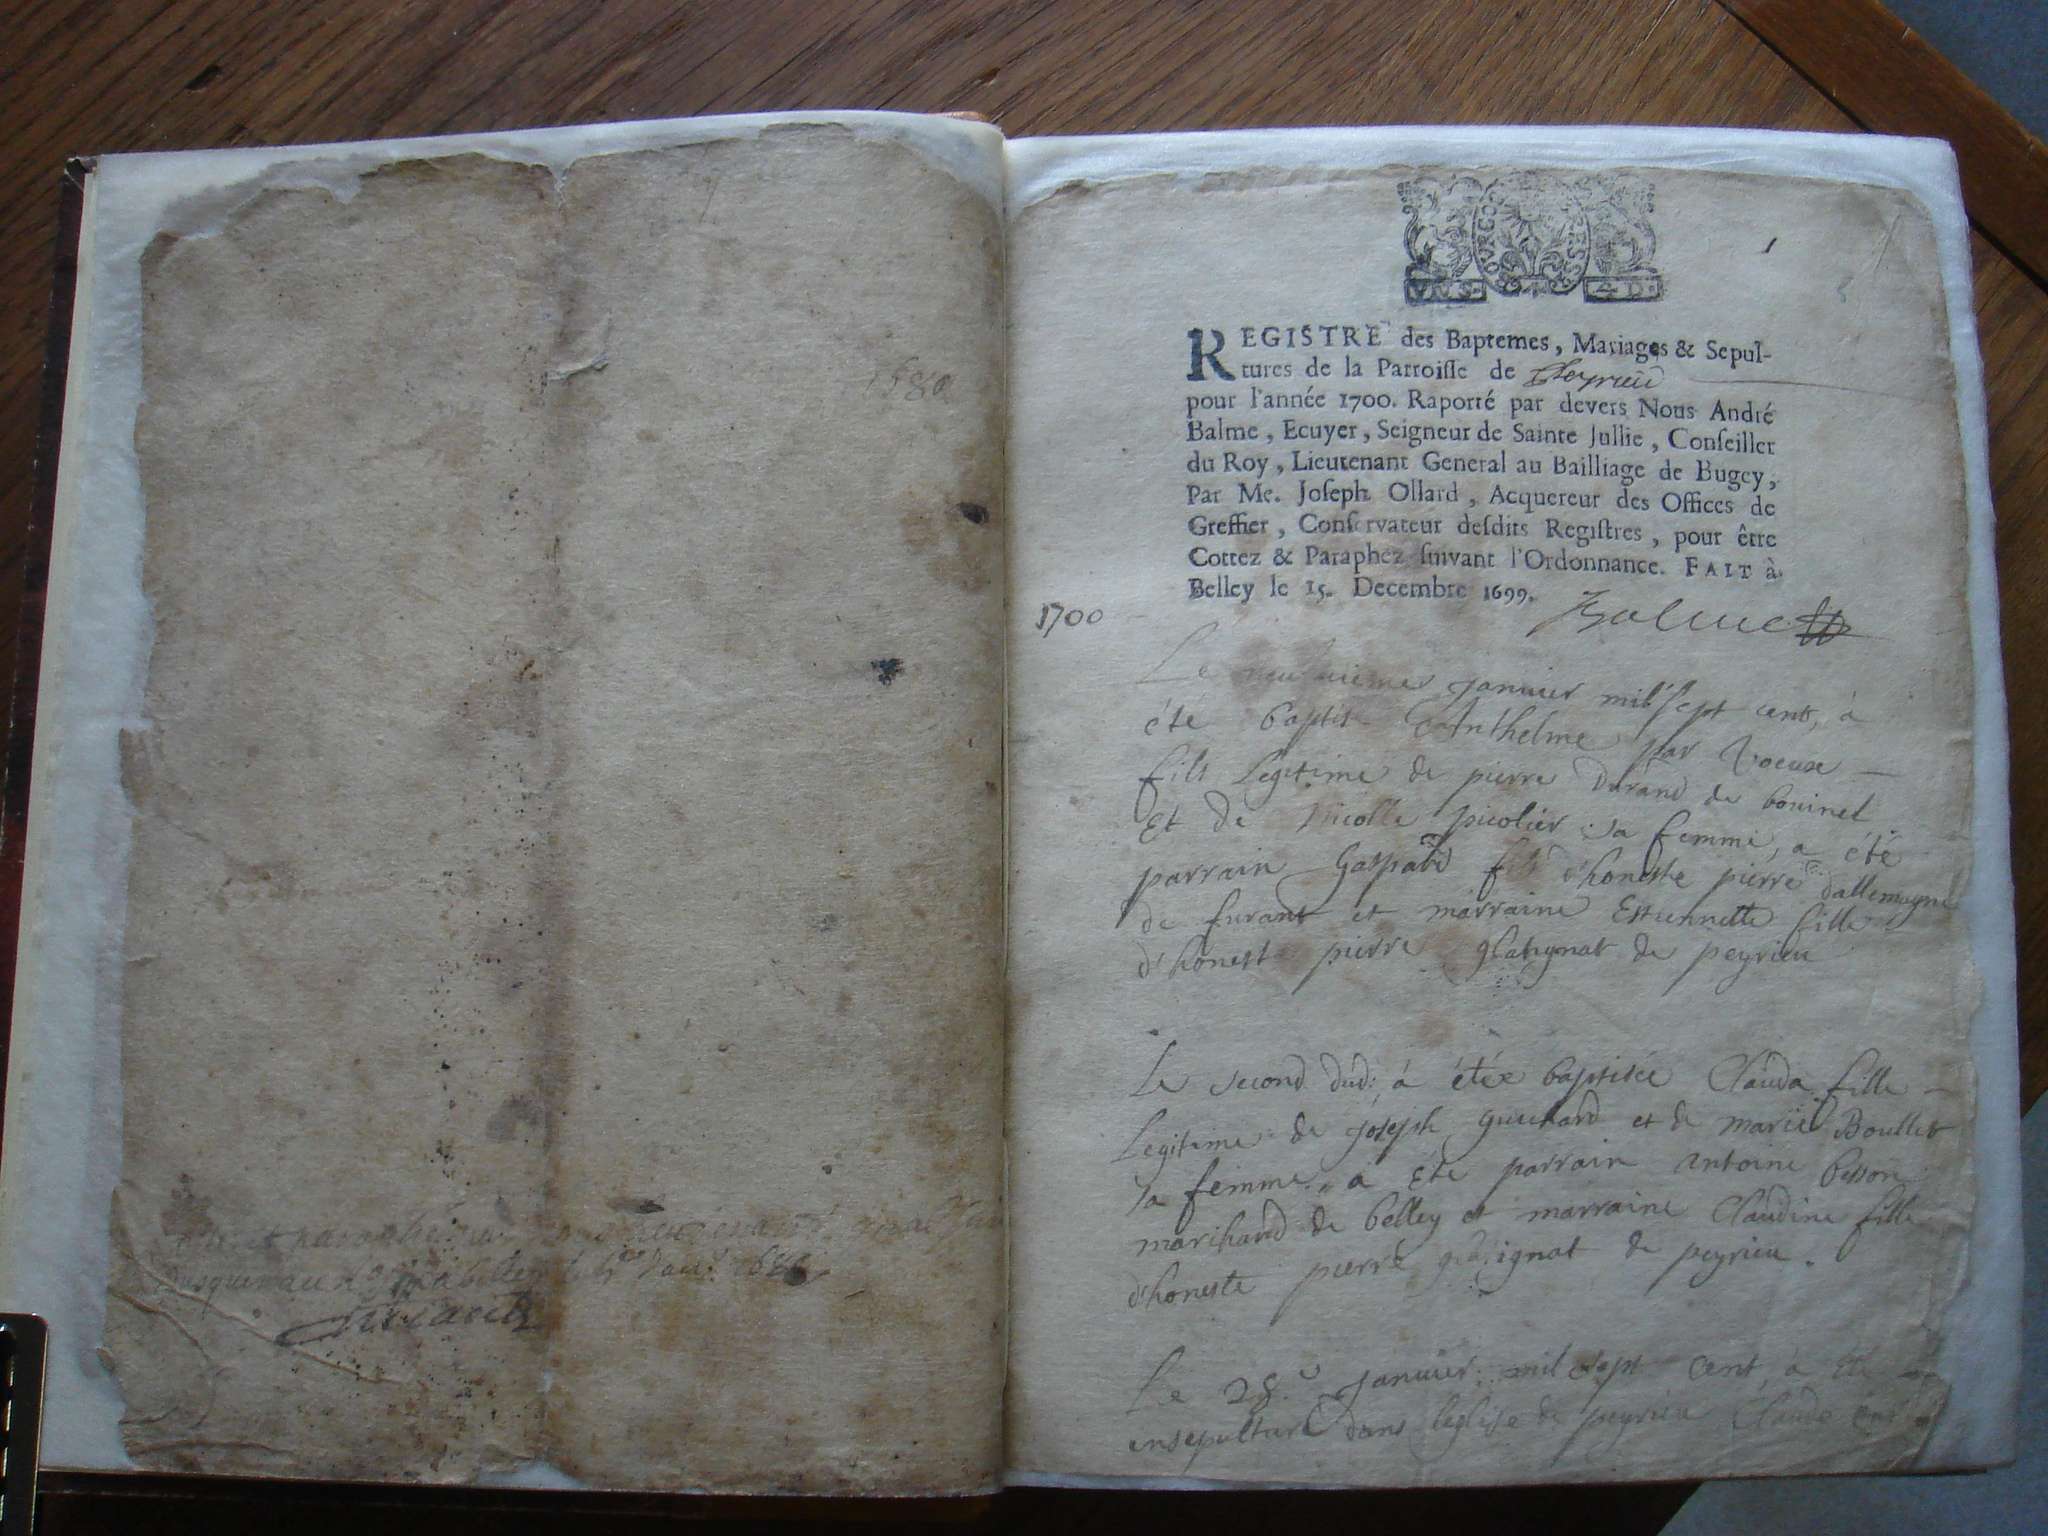 1580
BOURGOG BRESSE
UN S. 4 D.
1
REGISTRE des Baptemes, Mariages & Sepul-
tures de la Parroisse de Peyrieu
pour l'année 1700. Raporté par devers Nous André
Balme, Ecuyer, Seigneur de Sainte Jullie, Conseiller
du Roy, Lieutenant General au Bailliage de Bugey,
Par Me. Joseph Ollard, Acquereur des Offices de
Greffier, Conservateur desdits Registres, pour être
Cottez & Paraphez suivant l'Ordonnance. FAIT à
Belley le 15. Decembre 1699.
1700
Balme
Le janvier mil sept cent, à
été baptisé Anthelme par
fils Legitime de pierre Durand de bovinel
Et de Nicolle picolier sa femme, a été
parrain Gaspard fils d'honeste pierre dallemagne
de furant et marraine Estiennette fille
d'honest pierre glatignat de peyrieu
Le second dud: á étée baptisée Clauda fille
Legitime de joseph guichard et de marie Boullet
sa femme, a été parrain antoine besson
marchand de belley et marraine Claudine fille
d'honeste pierre glatignat de peyrieu.
Le 28.e janvier mil sept cent, à été
ensepulturé dans leglise de peyrieu Claude